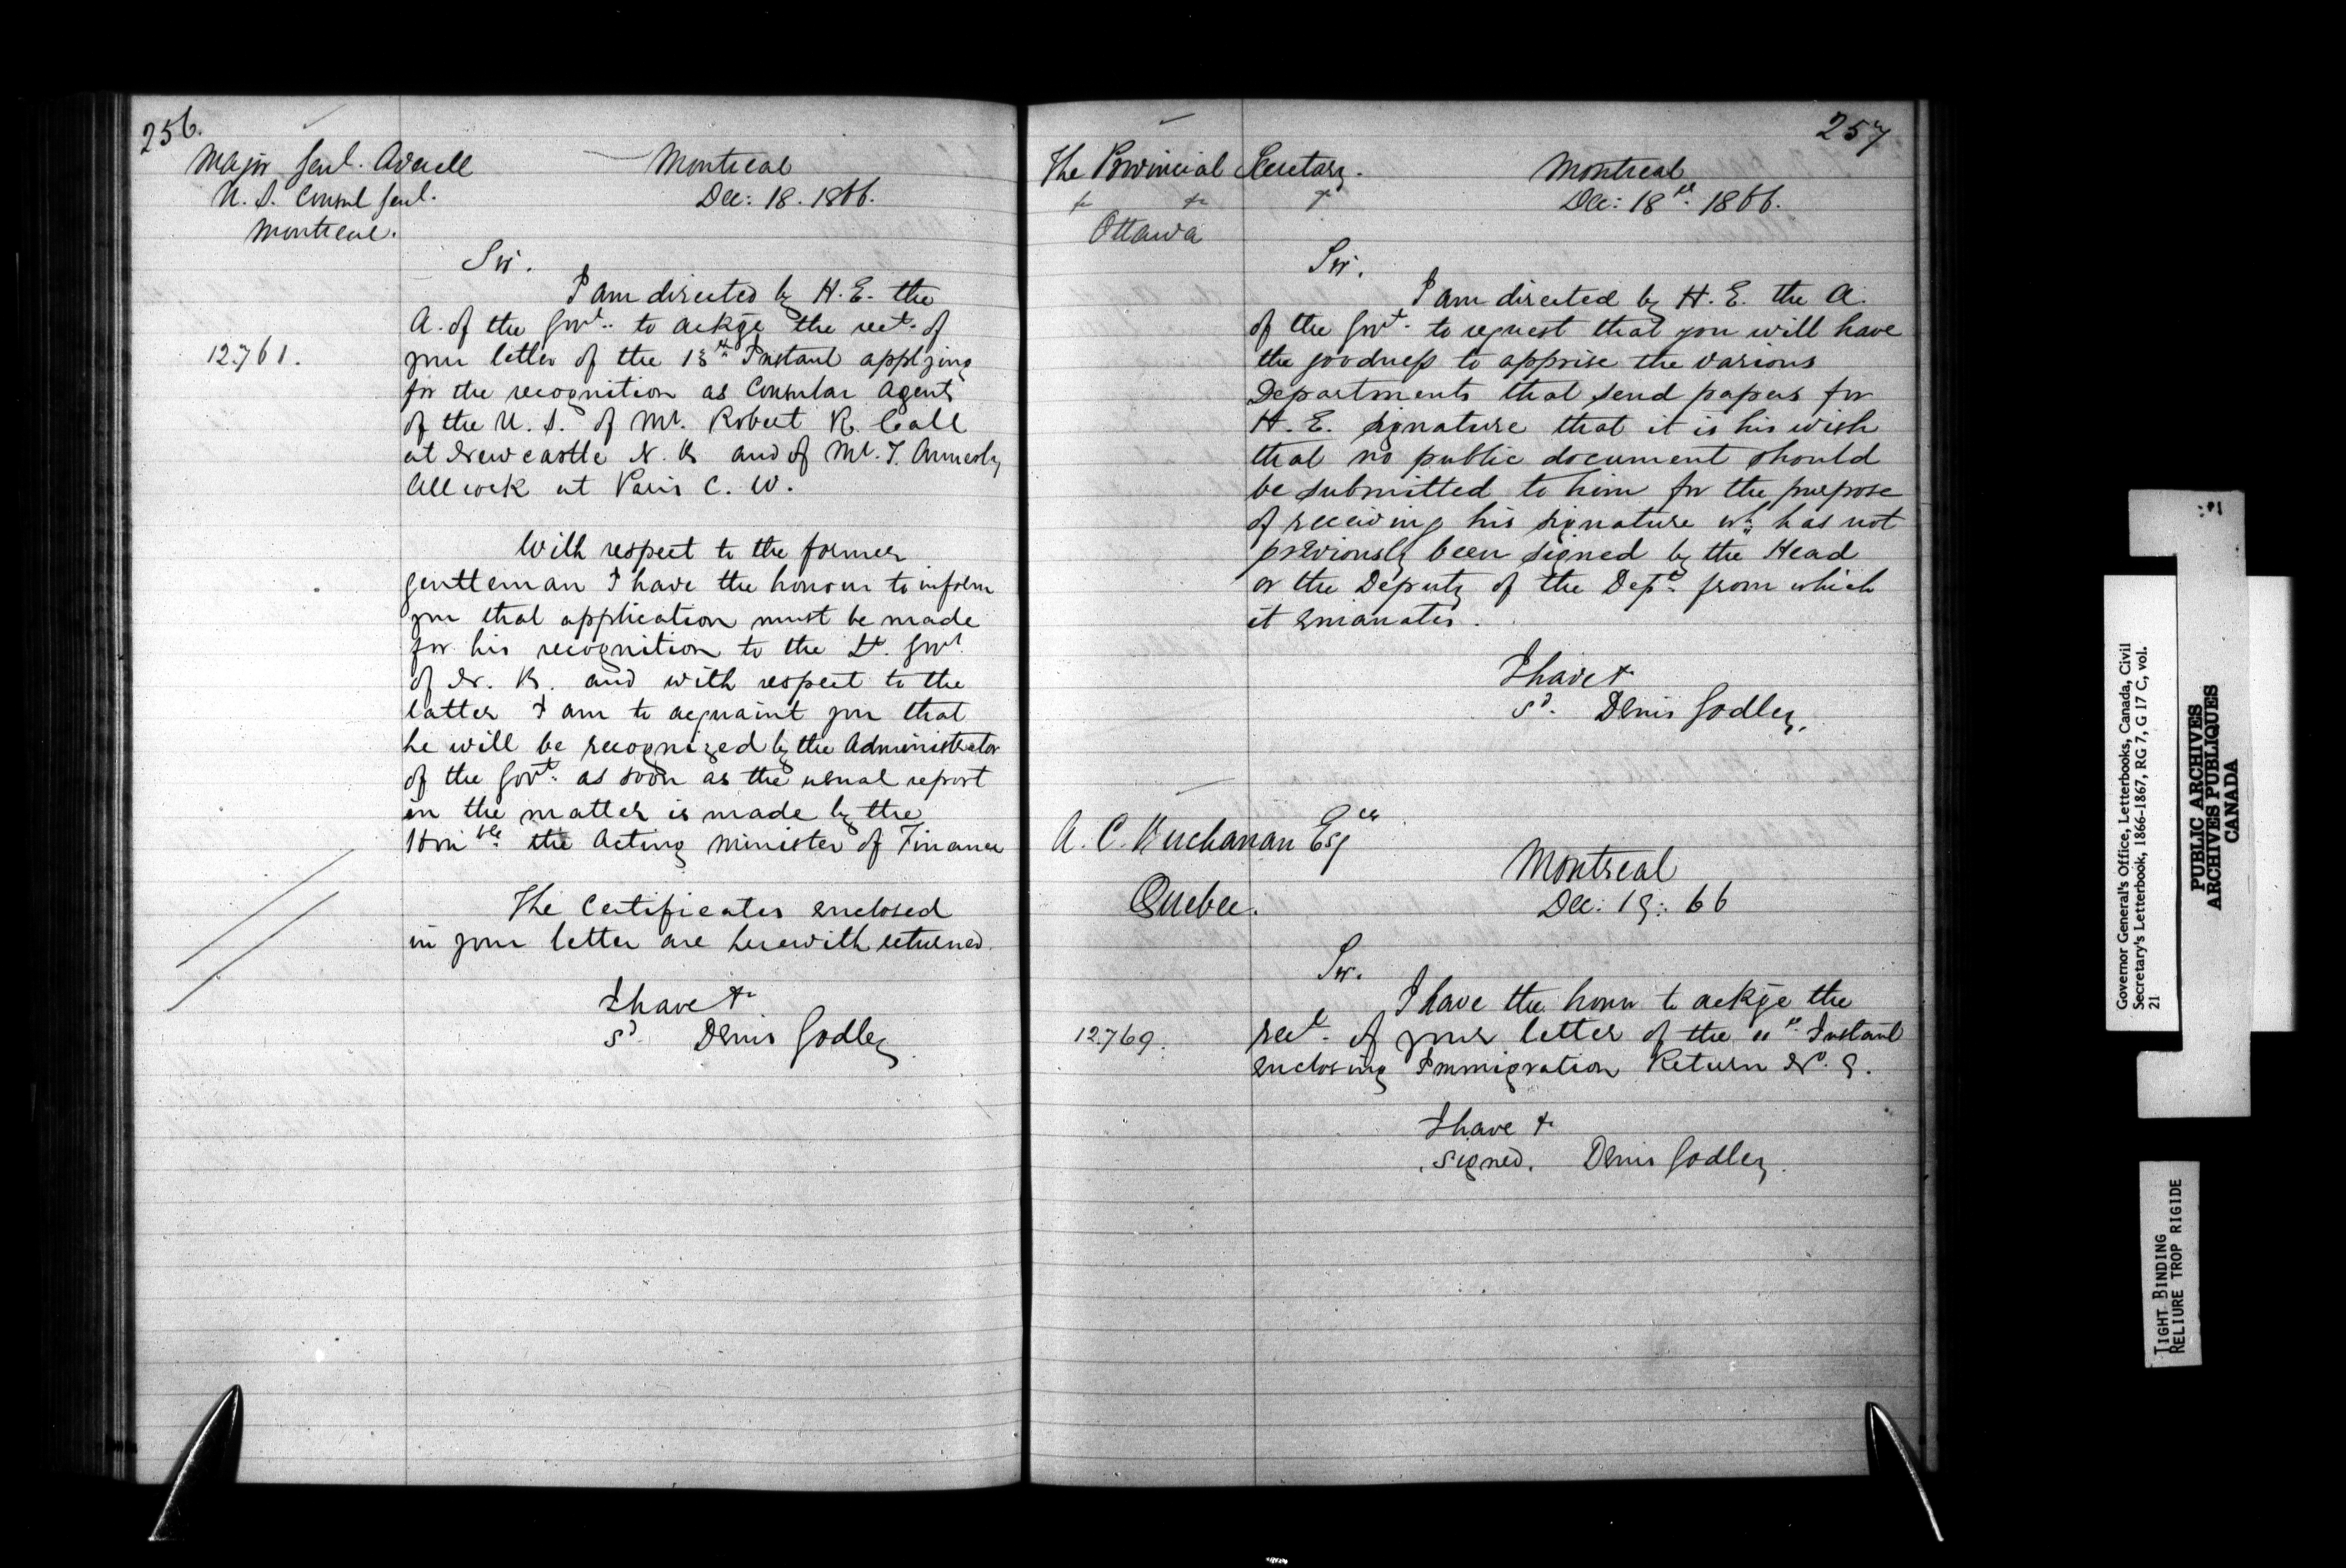 256.
Major Genl. Averell
U. S. Consul Genl.
Montreal.
Montreal
Dec: 18. 1866.
Sir.
I am directed by H. E. the
A. of the Govt. to ackge the rect. of
12761.
your letter of the 13th Instant applying
for the recognition as Consular Agents
of the U. S. of Mr. Robert R. Call
at Newcastle N. B and of Mr. T. Annesly
Allcock at Paris C. W.
With respect to the former
gentleman I have the honour to inform
you that application must be made
for his recognition to the Lt. Govr.
of N. B. and with respect to the
latter I am to acquaint you that
he will be recognized by the Administrator
of the Govt. as soon as the usual report
in the matter is made by the
Honble. the Acting Minister of Finance
The Certificates enclosed
in your letter are herewith returned.
I have &
Sd. Denis Godley
257
The Provincial Secretary.
& & &
Ottawa
Montreal
Dec: 18th. 1866.
Sir.
I am directed by H. E. the A.
of the Govt. to request that you will have
the goodness to apprise the various
Departments that send papers for
H. E. signature that it is his wish
that no public document should
be submitted to him for the purpose
of receiving his signature wh. has not
previously been signed by the Head
or the Deputy of the Dept. from which
it emanates.
I have &
Sd. Denis Godley.
A. C. Buchanan Esqre
Quebec.
Montreal
Dec: 19: 66
Sir.
I have the honr to ackge the
12769.
rect. of your letter of the 11th. Instant
enclosing Immigration Return No. 9.
I have &
signed. Denis Godley.
Governor General's Office, Letterbooks, Canada, Civil
Secretary's Letterbook, 1866-1867, RG 7, G 17 C, vol.
21
PUBLIC ARCHIVES
ARCHIVES PUBLIQUES
CANADA
TIGHT BINDING
RELIURE TROP RIGIDE